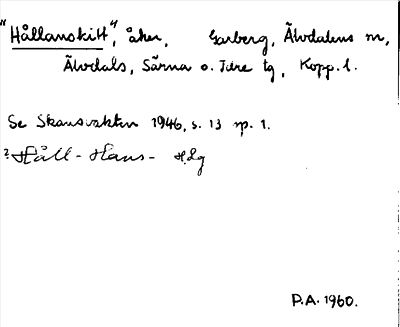 "Hållanskitt", åker, Garberg, Älvdalens sn,
Älvdals, Särna o. Idre tg, Kopp. l.
Se Skansvakten 1946, s. 13 sp. 1.
? Håll-Hans- HLg
P.A. 1960.